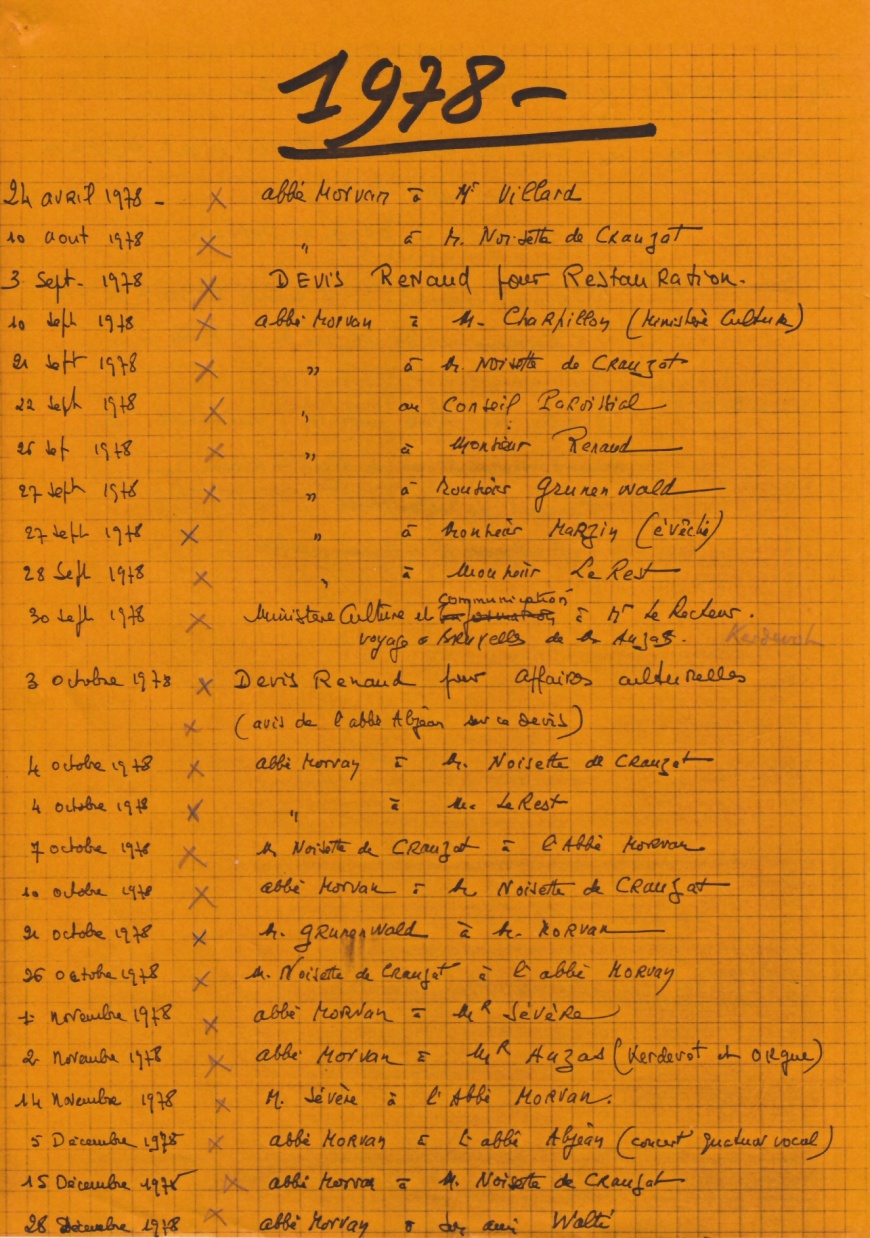 1978 -
24 avril 1978 - X abbé Morvan à Mr Villard
10 aout 1978 X " à M. Noisette de Crauzat
3 Sept. 1978 X DEVIS Renaud pour Restauration.
10 sept 1978 X abbé Morvan à M. Charpillon (Ministère Culture)
21 sept 1978 X " à M. Noisette de Crauzat
22 sept 1978 X " au Conseil Paroissial
25 sept 1978 X " à Monsieur Renaud
27 sept 1978 X " à Monsieur Grunenwald
27 sept 1978 X " à Monsieur Marzin (évêché)
28 sept 1978 X " à Monsieur Le Rest
communication
30 sept 1978 X Ministère Culture et à Mr Le Recteur.
voyage à Bruxelles de M. Auzas. Kerdevot
3 octobre 1978 X Devis Renaud pour Affaires culturelles
X (avis de l'abbé Abjean sur ce Devis)
4 octobre 1978 X abbé Morvan à M. Noisette de Crauzat
4 octobre 1978 X " à M. Le Rest
7 octobre 1978 X M. Noisette de Crauzat à l'Abbé Morvan
10 octobre 1978 X abbé Morvan à M. Noisette de Crauzat
21 octobre 1978 X M. Grunenwald à M. Morvan
26 octobre 1978 X M. Noisette de Crauzat à l'abbé Morvan
1er novembre 1978 X abbé Morvan à MR Sévère
2 Novembre 1978 X abbé Morvan à MR Auzas (Kerdevot et orgue)
14 Novembre 1978 X M. Sévère à l'Abbé Morvan.
5 Décembre 1978 X abbé Morvan à l'abbé Abjean (concert quatuor vocal)
15 Décembre 1978 X abbé Morvan à M. Noisette de Crauzat
28 Décembre 1978 X abbé Morvan à son ami Walté